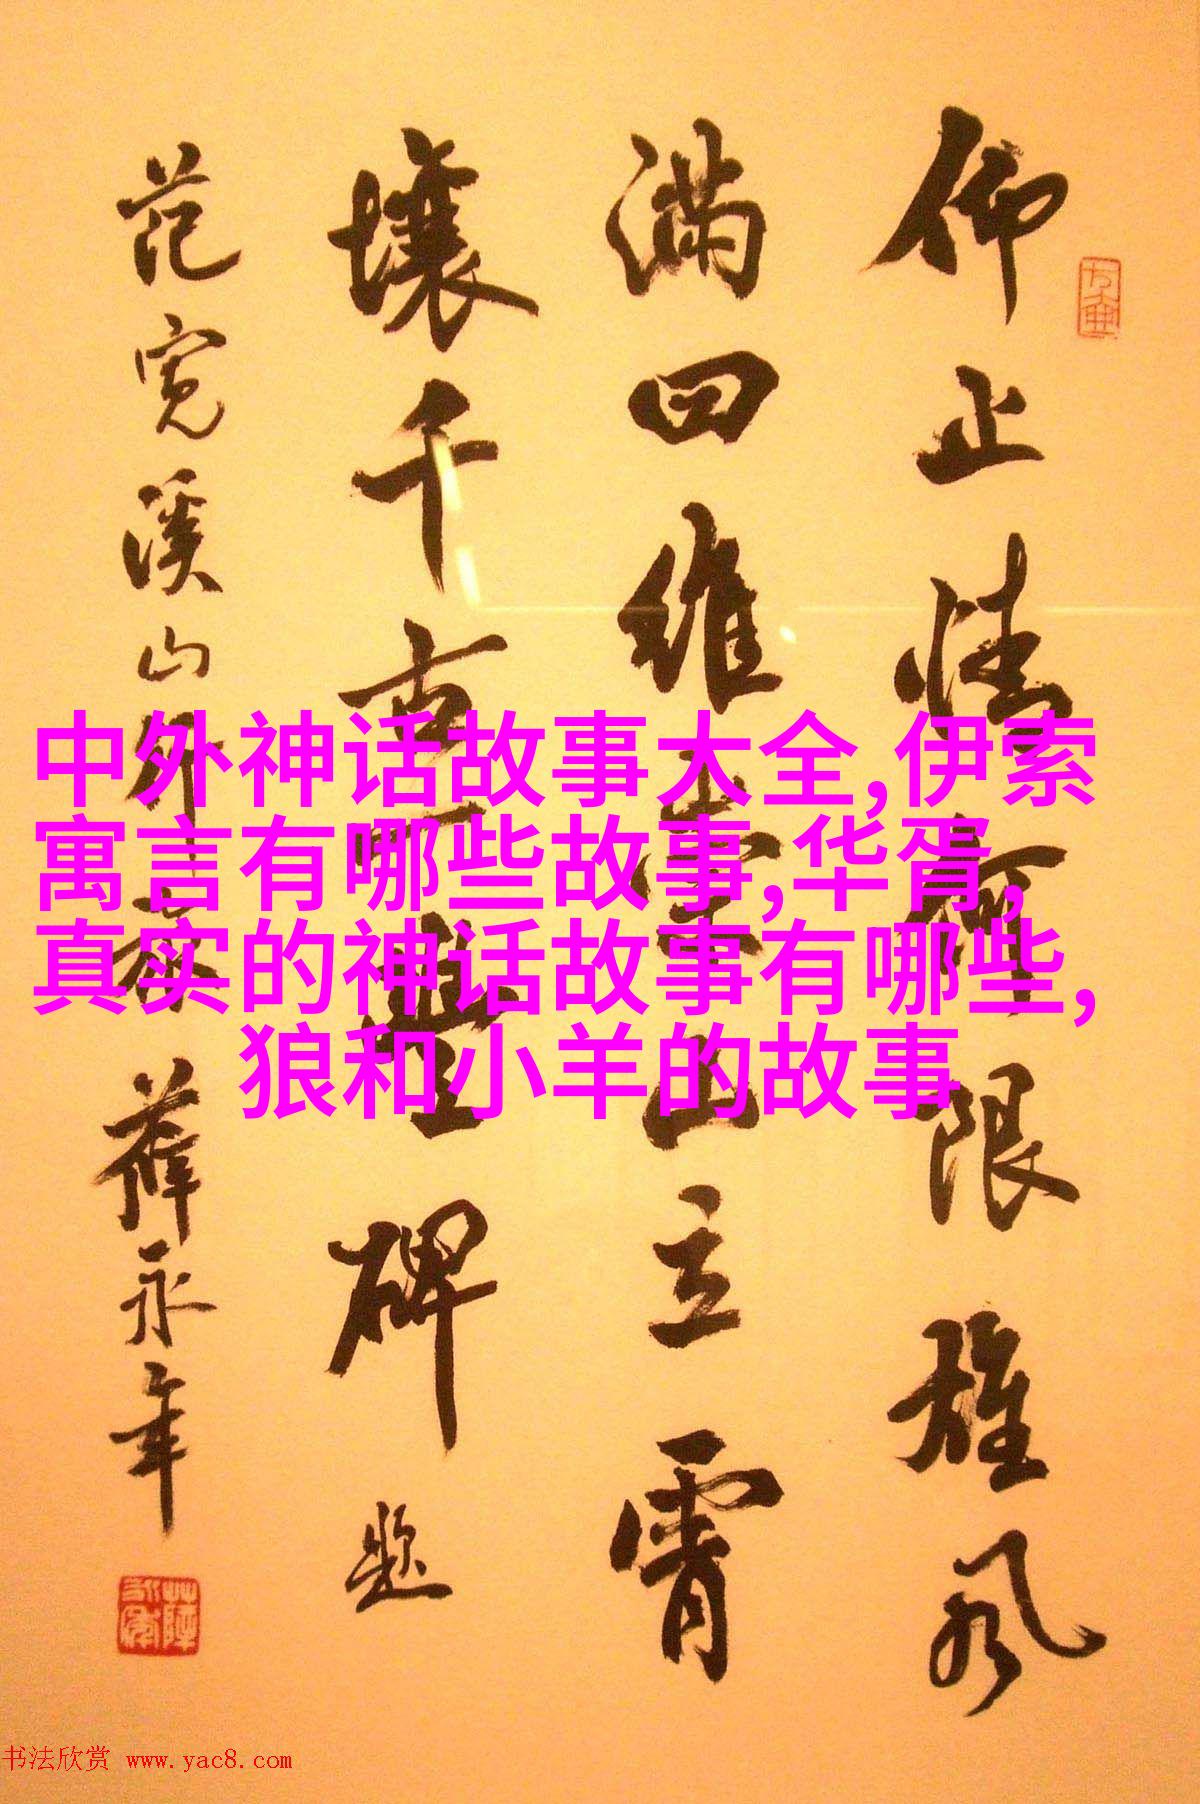 仰止情何限雄风
满四维崇山立霄
壤千古一丰碑 题
范宽溪山外 薛永年
中外神话故事大全,伊索
寓言有哪些故事,华胥,
真实的神话故事有哪些,
狼和小羊的故事
书法欣赏 www.yac8.com